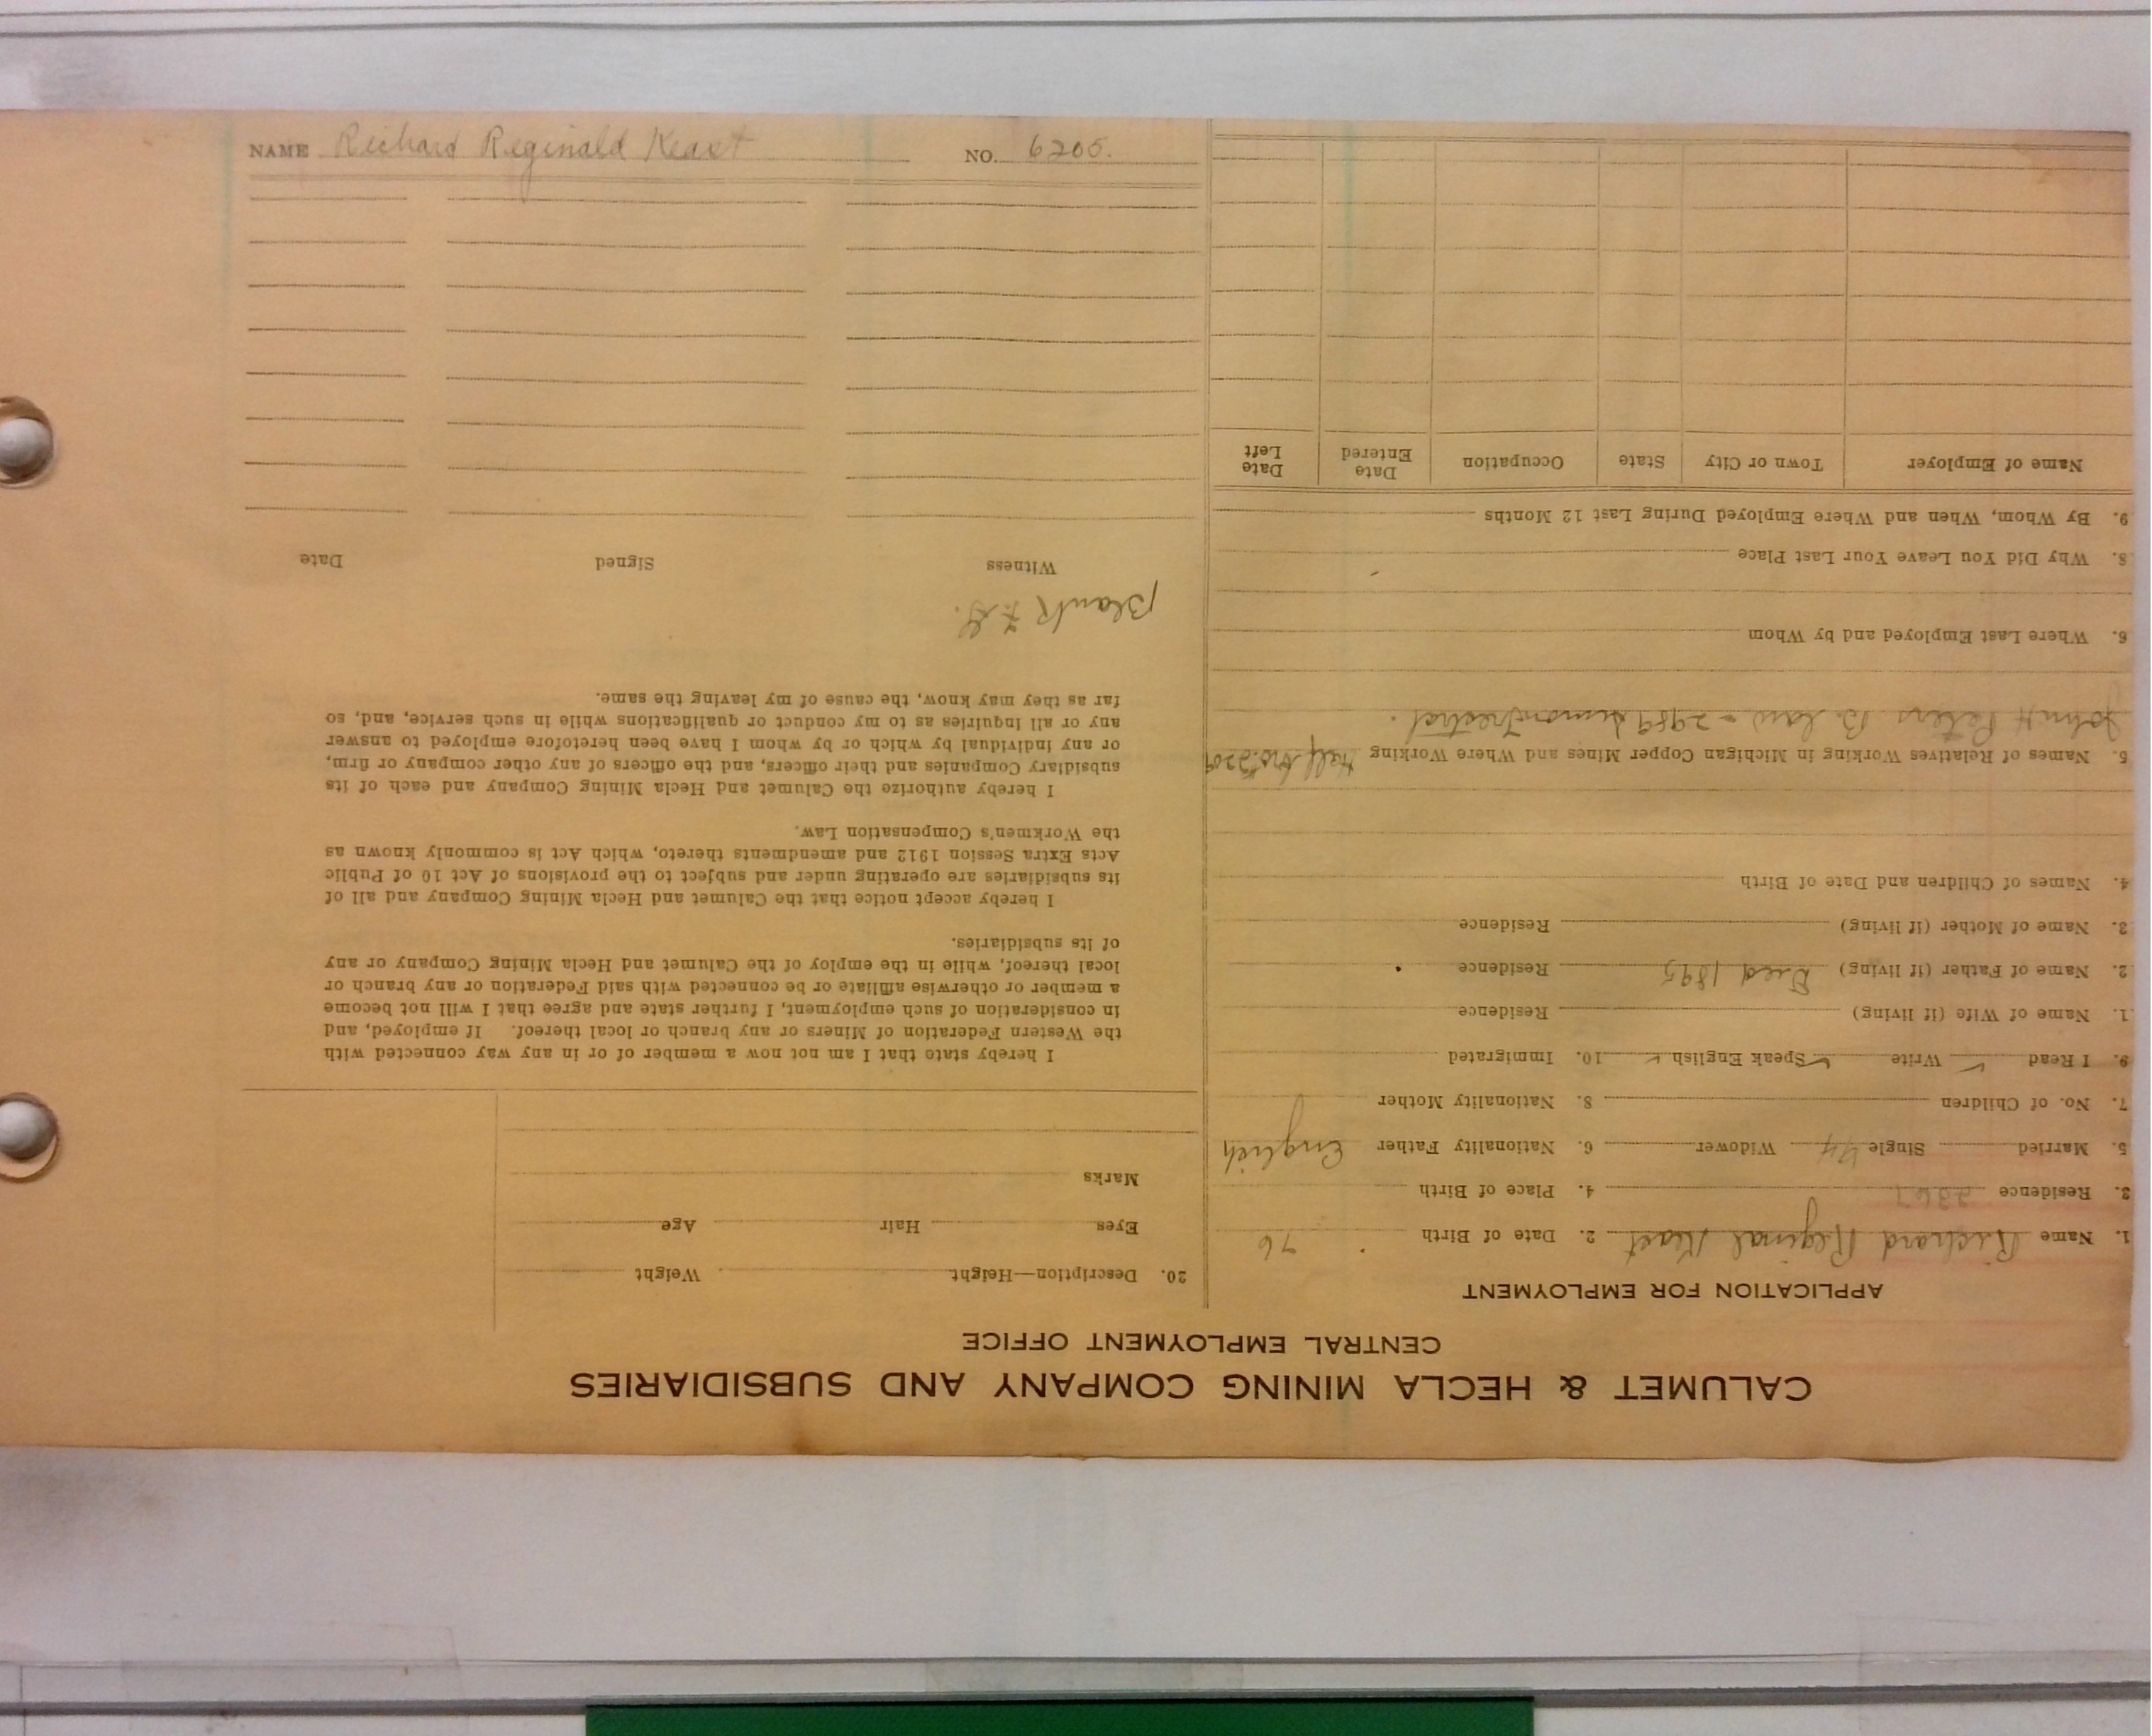 NAME Richard Reginald Keast NO. 6205.
CALUMET & HECLA MINING COMPANY AND SUBSIDIARIES
CENTRAL EMPLOYMENT OFFICE
APPLICATION FOR EMPLOYMENT
1. Name Richard Reginal Keast 2. Date of Birth 76
3. Residence 2367 4. Place of Birth
5. Married Single Widower 6. Nationality Father English
7. No. of Children 8. Nationality Mother
9. I Read ✓ Write ✓ Speak English ✓ 10. Immigrated
1. Name of Wife (if living) Residence
2. Name of Father (if living) Died 1895 Residence
3. Name of Mother (if living) Residence
4. Names of Children and Date of Birth
5. Names of Relatives Working in Michigan Copper Mines and Where Working Half bro. 2209
John H Peters B. law - 2989
6. Where Last Employed and by Whom
8. Why Did You Leave Your Last Place
9. By Whom, When and Where Employed During Last 12 Months
Name of Employer Town or City State Occupation Date Entered Date Left
20. Description—Height Weight
Eyes Hair Age
Marks
I hereby state that I am not now a member of or in any way connected with
the Western Federation of Miners or any branch or local thereof. If employed, and
in consideration of such employment, I further state and agree that I will not become
a member or otherwise affiliate or be connected with said Federation or any branch or
local thereof, while in the employ of the Calumet and Hecla Mining Company or any
of its subsidiaries.
I hereby accept notice that the Calumet and Hecla Mining Company and all of
its subsidiaries are operating under and subject to the provisions of Act 10 of Public
Acts Extra Session 1912 and amendments thereto, which Act is commonly known as
the Workmen's Compensation Law.
I hereby authorize the Calumet and Hecla Mining Company and each of its
subsidiary Companies and their officers, and the officers of any other company or firm,
or any individual by which or by whom I have been heretofore employed to answer
any or all inquiries as to my conduct or qualifications while in such service, and, so
far as they may know, the cause of my leaving the same.
Blank
Witness Signed Date